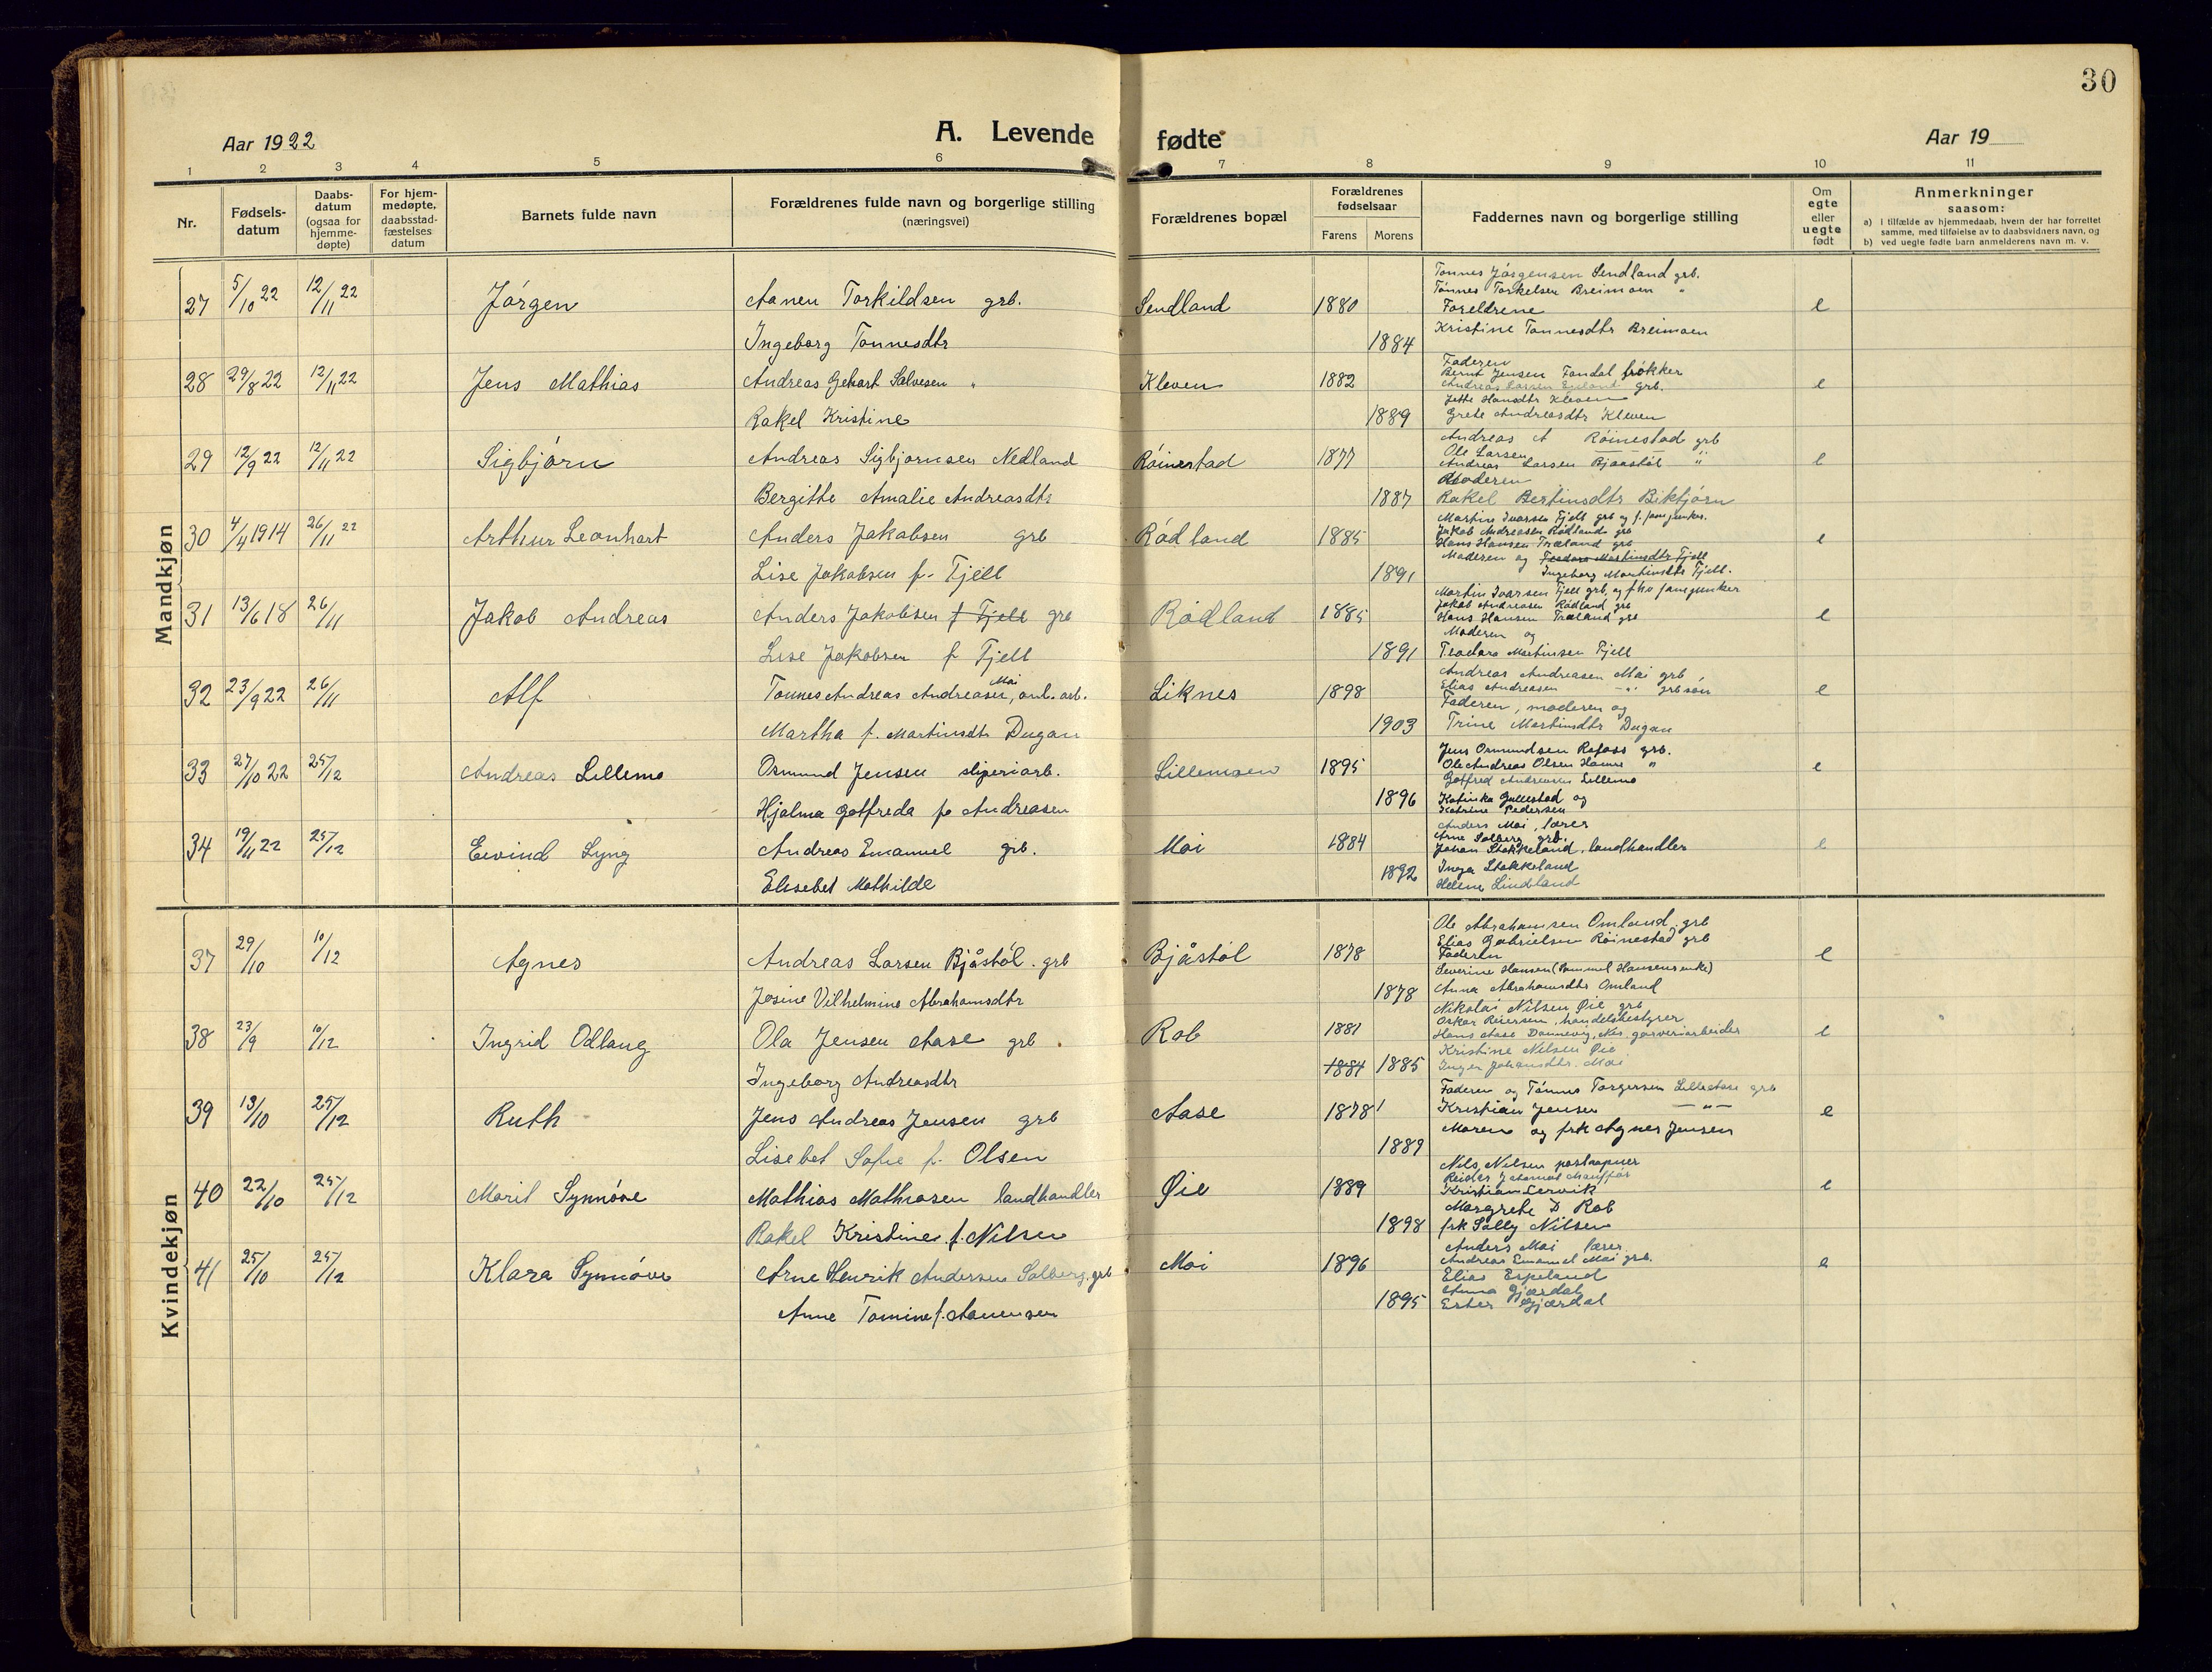 30
Aar 1922
A. Levende fødte
Aar 19
1 2 3 4 5 6 7 8 9 10 11
Nr.
Fødsels-
datum
Daabs-
datum
(ogsaa for
hjemme-
døpte)
For hjem-
medøpte,
daabsstad-
fæstelses
datum
Barnets fulde navn
Forældrenes fulde navn og borgerlige stilling
(næringsvei)
Forældrenes bopæl
Forældrenes
fødselsaar
Farens Morens
Faddernes navn og borgerlige stilling
Om
egte
eller
uegte
født
Anmerkninger
saasom:
a) i tilfælde av hjemmedaab, hvem der har forrettet
samme, med tilføielse av to daabsvidners navn, og
b) ved uegte fødte barn anmelderens navn m. v.
Mandkjøn
27 5/10 22 12/11 22 Jørgen Aanen Torkildsen grb. Sendland 1880 e
Ingeborg Tønnesdtr 1884
Tønnes Jørgensen Sendland grb.
Tønnes Torkelsen Breimoen "
Foreldrene
Kristine Tønnesdtr Breimoen
28 29/8 22 12/11 22 Jens Mathias Andreas Gehart Salvesen " Kleven 1882 e
Rakel Kristine 1889
Faderen
Bernt Jensen Fandal
Andreas Larsen grb.
Jette Hansdtr Kleven
Grete Andreasdtr Kleven
29 12/9 22 12/11 22 Sigbjørn Andreas Sigbjørnsen Nedland Røinestad 1877 e
Bergitte Amalie Andreasdtr 1887
Andreas A Røinestad grb
Ole Larsen
Andreas Larsen Bjaastøl "
Moderen
Rakel Bertinsdtr Biktjørn
30 4/4 1914 26/11 22 Arthur Leonhart Anders Jakobsen grb Rødland 1885 e
Lise Jakobsen f. Fjell 1891
Martin Ivarsen Fjell grb og f.
Jakob Andreasen Rødland grb
Hans Hansen Træland grb
Moderen og Teodora Martinsdtr Fjell
Ingeborg Martinsdtr Fjell.
31 13/6 18 26/11 Jakob Andreas Anders Jakobsen f Fjell grb Rødland 1885 e
Lise Jakobsen f Fjell 1891
Martin Ivarsen Fjell grb, og
Jakob Andreasen Rødland grb
Hans Hansen Træland grb
Moderen og
Teodora Martinsen Fjell
32 23/9 22 26/11 Alf Tønnes Andreas Andreasen Moi, anl. arb. Liknes 1898 e
Martha f. Martinsdtr Dugan 1903
Andreas Andreasen Moi grb
Elias Andreasen -"- grb søn
Faderen, moderen og
Trine Martinsdtr Dugan
33 27/10 22 25/12 Andreas Lillemo Osmund Jensen sliperiarb. Lillemoen 1895 e
Hjalma Gotfreda f. Andreasen 1896
Jens Osmundsen Rafoss grb.
Ole Andreas Olsen "
Gotfred Andreasen Lillemo
Katinka Gullestad og
Katrine Pedersen
34 19/11 22 25/12 Eivind Lyng Andreas Emanuel grb. Moi 1884 e
Elisebet Mathilde 1892
Anders Moi, lærer
Arne Solberg grb.
Johan Stakkeland, landhandler
Inga Stakkeland
Helene Lindland
Kvindekjøn
37 29/10 10/12 Agnes Andreas Larsen Bjåstøl. grb Bjåstøl 1878 e
Josine Vilhelmine Abrahamsdtr 1878
Ole Abrahamsen Omland, grb
Elias Gabrielsen Røinestad grb
Faderen
Severine Hansen (Sammel Hansens enke)
Anna Abrahamsdtr Omland
38 23/9 10/12 Ingrid Odlaug Ola Jensen Aase grb. Rob 1881 e
Ingeborg Andreasdtr 1884 1885
Nikolai Nilsen Øie grb
Oskar Reiersen, handelsbestyrer
Hans Aase Dannevig, Nes, garveriarbeider
Kristine Nilsen Øie
Inger Johansdtr. Moi
39 13/10 25/12 Ruth Jens Andreas Jensen grb Aase 1878 e
Lisebet Sofie f. Olsen 1889
Faderen og Tønnes Torgersen grb
Kristian Jensen -"-
Moren og frk Agnes Jensen
40 22/10 25/12 Marit Synnøve Mathias Mathiasen landhandler Øie 1889 e
Rakel Kristine f. Nilsen 1898
Nils Nilsen postaapner
Kristian Lervik
Margrete D Rob
frk Sally Nilsen
41 25/10 25/12 Klara Synnøve Arne Henrik Andersen Solberg. grb Moi 1896 e
Anne Tomine f. Aanensen 1895
Anders Moi lærer
Andreas Emanuel Moi grb.
Elias Espeland
Anna Gjerdal
Ester Gjerdal